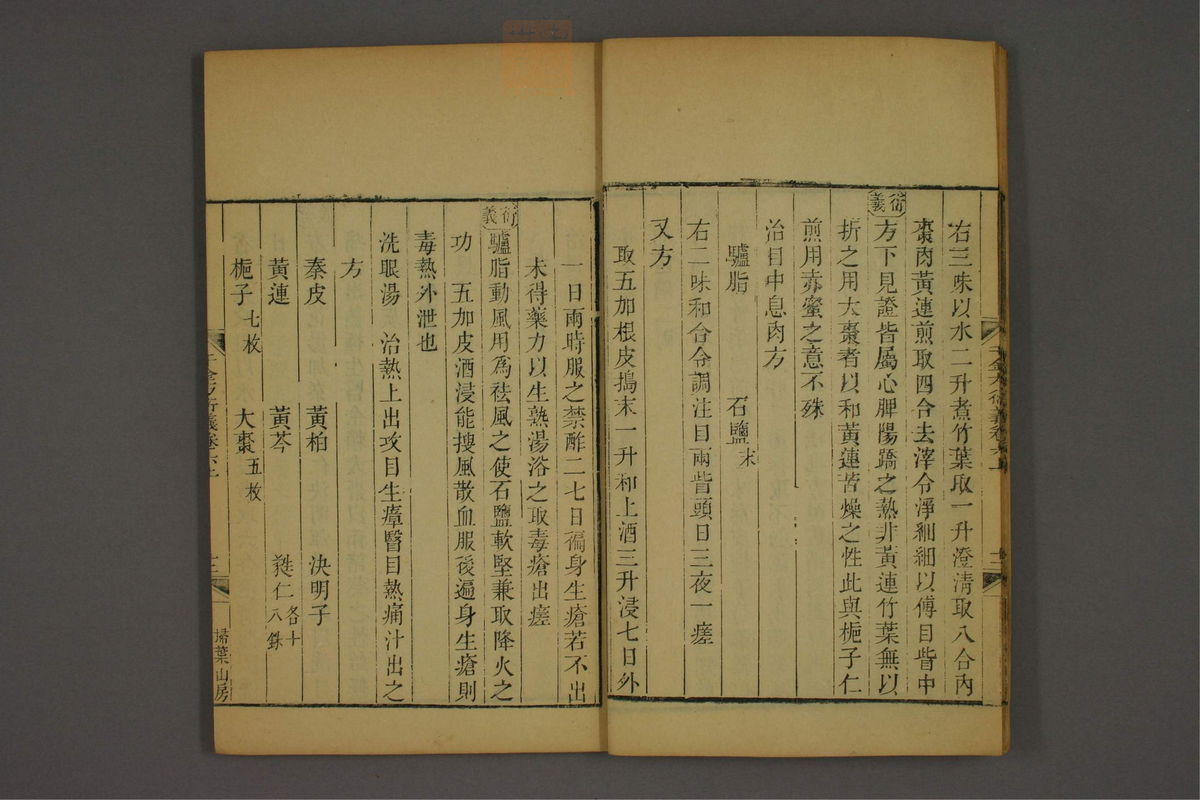 右三味以水二升煮竹葉取一升澄清取八合內
棗肉黃連煎取四合去滓令淨細細以傅目眥中
衍義
方下見證皆屬心脾陽蹻之熱非黃連竹葉無以
折之用大棗者以和黃連苦燥之性此與梔子仁
煎用赤蜜之意不殊
治目中息肉方
驢脂 石鹽末
右二味和合令調注目兩眥頭日三夜一瘥
又方
取五加根皮搗末一升和上酒三升浸七日外
一日兩時服之禁酢二七日徧身生瘡若不出
未得藥力以生熟湯浴之取毒瘡出瘥
衍義
驢脂動風用為祛風之使石鹽軟堅兼取降火之
功 五加皮酒浸能搜風散血服後遍身生瘡則
毒熱外泄也
洗眼湯 治熱上出攻目生瘴瞖目熱痛汁出之
方
秦皮 黃柏 決明子
黃連 黃芩 蕤仁各十八銖
梔子七枚 大棗五枚
千金方衍義卷六上
十二
掃葉山房